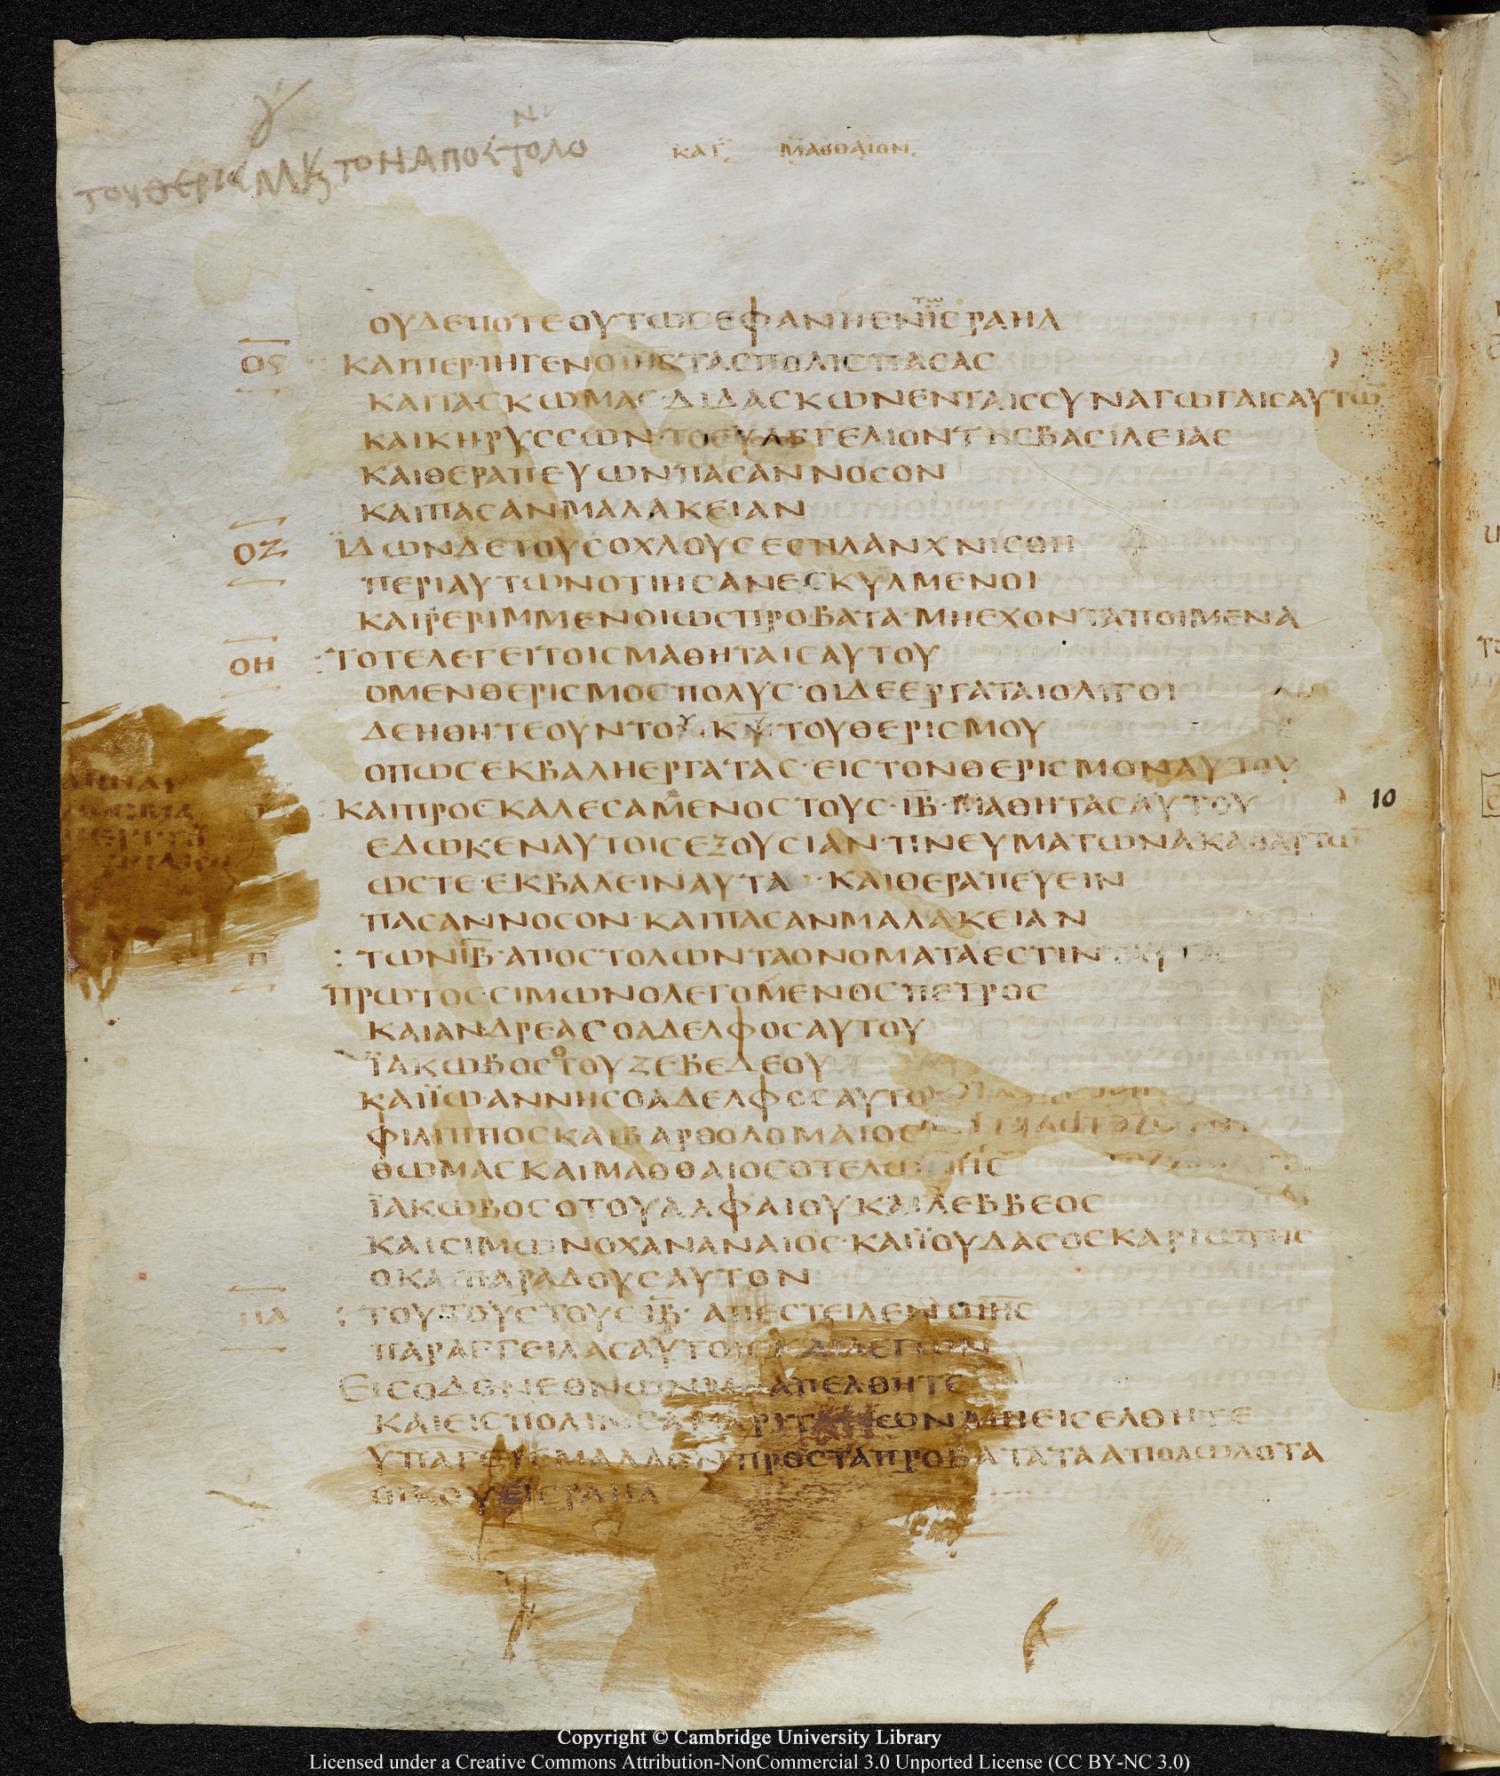 ΚΑΤ ΜΑΘΘΑΙΟΝ
ΤΟΝ ΑΠΟΣΤΟΛΟ
ΟΥΔΕΠΟΤΕΟΥΤΩΣΕΦΑΝΗΕΝΪΣΡΑΗΛ
Ος ΚΑΙΠΕΡΙΗΓΕΝΟΙΗΣΤΑΣΠΟΛΙΣΠΑΣΑΣ
ΚΑΙΤΑΣΚΩΜΑΣ·ΔΙΔΑΣΚΩΝΕΝΤΑΙΣΣΥΝΑΓΩΓΑΙΣΑΥΤΩ̅
ΚΑΙΚΗΡΥΣΣΩΝ·ΤΟΕΥΑΓΓΕΛΙΟΝΤΗΣΒΑΣΙΛΕΙΑΣ
ΚΑΙΘΕΡΑΠΕΥΩΝΠΑΣΑΝΝΟΣΟΝ
ΚΑΙΠΑΣΑΝΜΑΛΑΚΕΙΑΝ
ΟΖ ΪΔΩΝΔΕΤΟΥΣΟΧΛΟΥΣΕΣΠΛΑΝΧΝΙΣΘΗ
ΠΕΡΙΑΥΤΩΝΟΤΙΗΣΑΝΕΣΚΥΛΜΕΝΟΙ
ΚΑΙΡΕΡΙΜΜΕΝΟΙΩΣΠΡΟΒΑΤΑ·ΜΗΕΧΟΝΤΑΠΟΙΜΕΝΑ
ΟΗ :ΤΟΤΕΛΕΓΕΙΤΟΙΣΜΑΘΗΤΑΙΣΑΥΤΟΥ
ΟΜΕΝΘΕΡΙΣΜΟΣΠΟΛΥΣ·ΟΙΔΕΕΡΓΑΤΑΙΟΛΙΓΟΙ
ΔΕΗΘΗΤΕΟΥΝΤΟΥΚΥ̅ΤΟΥΘΕΡΙΣΜΟΥ
ΟΠΩΣΕΚΒΑΛΗΕΡΓΑΤΑΣ·ΕΙΣΤΟΝΘΕΡΙΣΜΟΝΑΥΤΟΥ
ΚΑΙΠΡΟΣΚΑΛΕΣΑΜΕΝΟΣΤΟΥΣ·ΙΒ̅·ΜΑΘΗΤΑΣΑΥΤΟΥ 10
ΕΔΩΚΕΝΑΥΤΟΙΣΕΞΟΥΣΙΑΝ·ΠΝΕΥΜΑΤΩΝΑΚΑΘΑΡΤΩ̅
ΩΣΤΕ·ΕΚΒΑΛΕΙΝΑΥΤΑ·ΚΑΙΘΕΡΑΠΕΥΕΙΝ
ΠΑΣΑΝΝΟΣΟΝ·ΚΑΙΠΑΣΑΝΜΑΛΑΚΕΙΑΝ
Π : ΤΩΝΙΒ̅·ΑΠΟΣΤΟΛΩΝΤΑΟΝΟΜΑΤΑΕΣΤΙΝ
ΠΡΩΤΟΣ·ΣΙΜΩΝΟΛΕΓΟΜΕΝΟΣΠΕΤΡΟΣ
ΚΑΙΑΝΔΡΕΑΣΟΑΔΕΛΦΟΣΑΥΤΟΥ
ΪΑΚΩΒΟΣΟΤΟΥΖΕΒΕΔΕΟΥ
ΚΑΙΪΩΑΝΝΗΣΟΑΔΕΛΦΟΣΑΥΤΟΥ
ΦΙΛΙΠΠΟΣΚΑΙΒΑΡΘΟΛΟΜΑΙΟΣ
ΘΩΜΑΣΚΑΙΜΑΘΘΑΙΟΣΟΤΕΛΩΝΗΣ
ΪΑΚΩΒΟΣΟΤΟΥΑΛΦΑΙΟΥΚΑΙΛΕΒΒΕΟΣ
ΚΑΙΣΙΜΩΝΟΧΑΝΑΝΑΙΟΣ·ΚΑΙΪΟΥΔΑΣΟΣΚΑΡΙΩΤΗΣ
ΟΚΑΙΠΑΡΑΔΟΥΣΑΥΤΟΝ
ΠΑ : ΤΟΥΤΟΥΣΤΟΥΣΙΒ̅·ΑΠΕΣΤΕΙΛΕΝΟΙΗΣ
ΠΑΡΑΓΓΕΙΛΑΣΑΥΤΟΙΣΚΑΙΛΕΓΩΝ
ΕΙΣΟΔΟΝΕΘΝΩΝΜΗΑΠΕΛΘΗΤΕ
ΚΑΙΕΙΣΠΟΛΙΝΣΑΜΑΡΙΤΑΝΩΝΜΗΕΙΣΕΛΘΗΤΕ
ΥΠΑΓΕΤΕΜΑΛΛΟΝΠΡΟΣΤΑΠΡΟΒΑΤΑΤΑΑΠΟΛΩΛΟΤΑ
ΟΙΚΟΥΕΙΣΡΑΗΛ
Copyright © Cambridge University Library
Licensed under a Creative Commons Attribution-NonCommercial 3.0 Unported License (CC BY-NC 3.0)